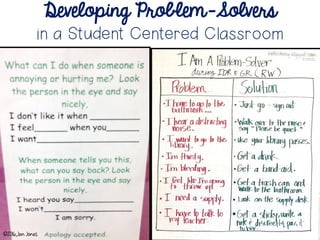 Developing Problem-Solvers
in a Student Centered Classroom
What can I do when someone is
annoying or hurting me? Look
the person in the eye and say
nicely,
I don't like it when
I feel when you
I want
When someone tells you this,
what can you say back? Look
the person in the eye and say
nicely,
I heard you say
I won't
I am sorry.
Apology accepted.
©2016 Jen Jones
I Am A Problem-Solver
during IDR & GR (RW)
Problem
Solution
• I have to go to the
bathroom...
• Just go - sign out
• I hear a distracting
noise.
• Walk over to the noise
& say "Please be quiet"
• I want to go to the
library.
• Use your library passes.
• I'm thirsty.
• Get a drink.
• I'm bleeding.
• Get a band aid.
• I feel like I'm going
to throw up!
• Get a trash can and
walk to the bathroom
• I need a supply.
• Look on the supply desk.
• I have to talk to
my teacher.
• Get a sticky, write a
note & discreetly pass it